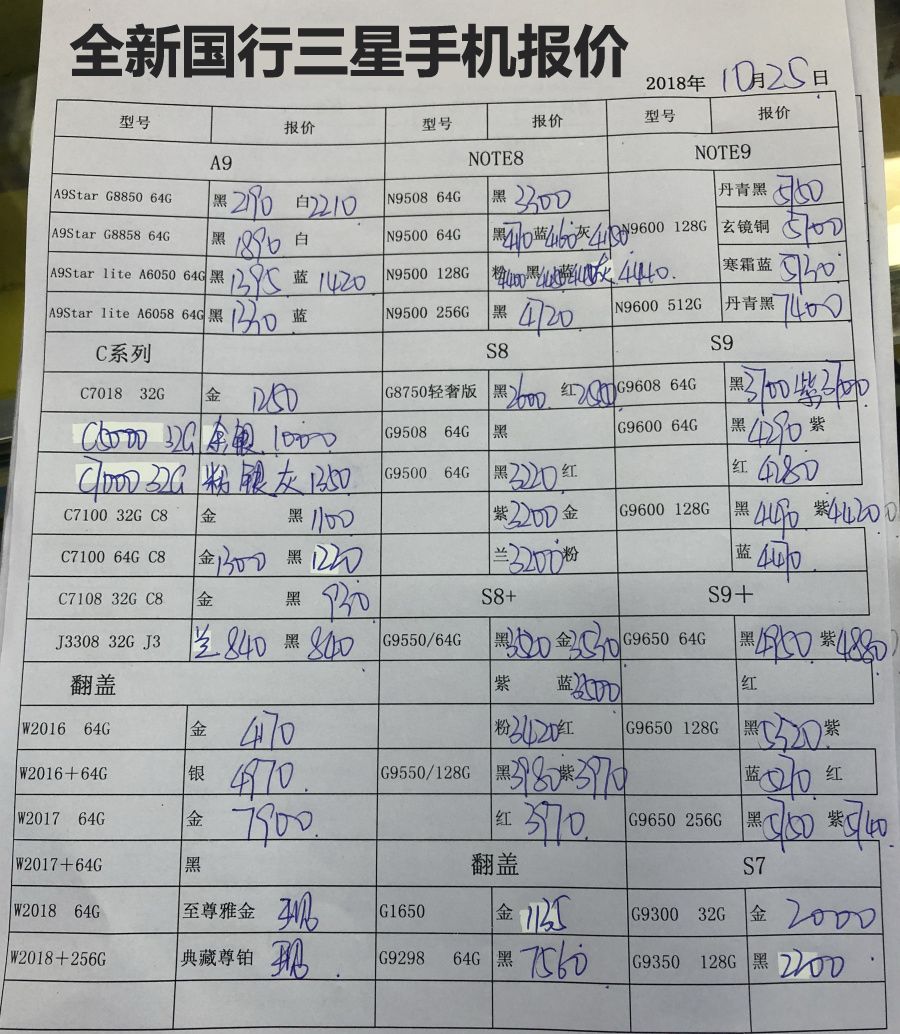 全新国行三星手机报价
2018年 10月25日
型号 报价 型号 报价 型号 报价
A9 NOTE8 NOTE9
A9Star G8850 64G 黑 2190 白2210 N9508 64G 黑 3300 丹青黑
A9Star G8858 64G 黑 1890 白 N9500 64G 黑 蓝 灰 N9600 128G 玄镜铜
A9Star lite A6050 64G 黑 1395 蓝 1420 N9500 128G 粉 黑 蓝 灰 4440 寒霜蓝
A9Star lite A6058 64G 黑 1330 蓝 N9500 256G 黑 4720 N9600 512G 丹青黑 7400
C系列 S8 S9
C7018 32G 金 1250 G8750轻奢版 黑2600 红 G9608 64G 黑3700 紫3700
C5000 32G 金银 G9508 64G 黑 G9600 64G 黑4290 紫
C7000 32G 粉 银 灰 1350 G9500 64G 黑3220红 红 4280
C7100 32G C8 金 黑 1100 紫3200金 G9600 128G 黑 紫4420
C7100 64G C8 金1300 黑 1220 兰3200粉 蓝
C7108 32G C8 金 黑 930 S8+ S9+
J3308 32G J3 兰 840 黑 840 G9550/64G 黑3520 金3530 G9650 64G 黑 紫4880
翻盖 紫 蓝3500 红
W2016 64G 金 4170 粉3420红 G9650 128G 黑 紫
W2016+64G 银 4970 G9550/128G 黑3980紫3970 蓝 红
W2017 64G 金 7900 红 3970 G9650 256G 黑 紫
W2017+64G 黑 翻盖 S7
W2018 64G 至尊雅金 G1650 金 1135 G9300 32G 金 2000
W2018+256G 典藏尊铂 G9298 64G 黑 7560 G9350 128G 黑 2200